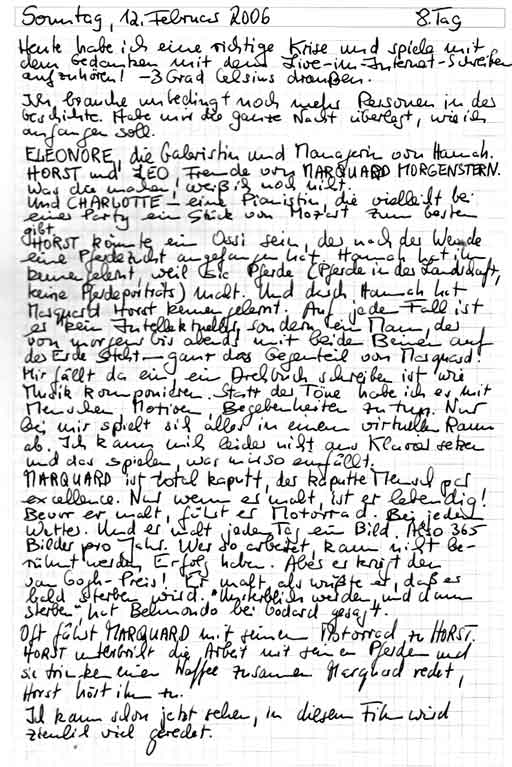 Sonntag, 12. Februar 2006 8. Tag
Heute habe ich eine richtige Krise und spiele mit
dem Gedanken mit dem Live-im-Internet-Schreiben
aufzuhören! -3 Grad Celsius draußen.
Ich brauche unbedingt noch mehr Personen in der
Geschichte. Habe mir die ganze Nacht überlegt, wie ich
anfangen soll.
ELEONORE, die Galeristin und Managerin von Hannah.
HORST und LEO Freunde von MARQUARD MORGENSTERN.
Was die machen, weiß ich noch nicht.
Und CHARLOTTE – eine Pianistin, die vielleicht bei
einer Party ein Stück von Mozart zum besten
gibt.
HORST könnte ein Ossi sein, der nach der Wende
eine Pferdezucht angefangen hat. Hannah hat ihn
kennengelernt, weil sie Pferde (Pferde in der Landschaft,
keine Pferdeporträts) malt. Und durch Hannah hat
Marquard Horst kennengelernt. Auf jeden Fall ist
er kein Intellektueller, sondern ein Mann, der
von morgens bis abends mit beiden Beinen auf
der Erde steht – ganz das Gegenteil von Marquard.
Mir fällt da ein, ein Drehbuch schreiben ist wie
Musik komponieren. Statt der Töne habe ich es mit
Menschen, Motiven, Begebenheiten zu tun. Nur
bei mir spielt sich alles in einem virtuellen Raum
ab. Ich kann mich leider nicht ans Klavier setzen
und das spielen, was mir so einfällt.
MARQUARD ist total kaputt, der kaputte Mensch par
excellence. Nur wenn er malt, ist er lebendig!
Bevor er malt, fährt er Motorrad. Bei jedem
Wetter. Und er malt jeden Tag ein Bild. Also 365
Bilder pro Jahr. Wer so arbeitet, kann nicht be-
rühmt werden, Erfolg haben. Aber er kriegt den
van Gogh-Preis! Er malt, als wüßte er, daß er
bald sterben wird. "Unsterblich werden und dann
sterben", hat Belmondo bei Godard gesagt.
Oft fährt MARQUARD mit seinem Motorrad zu HORST.
HORST unterbricht die Arbeit mit seinen Pferden und
sie trinken einen Kaffee zusammen. Marquard redet,
Horst hört ihm zu.
Ich kann schon jetzt sehen, in diesem Film wird
ziemlich viel geredet.